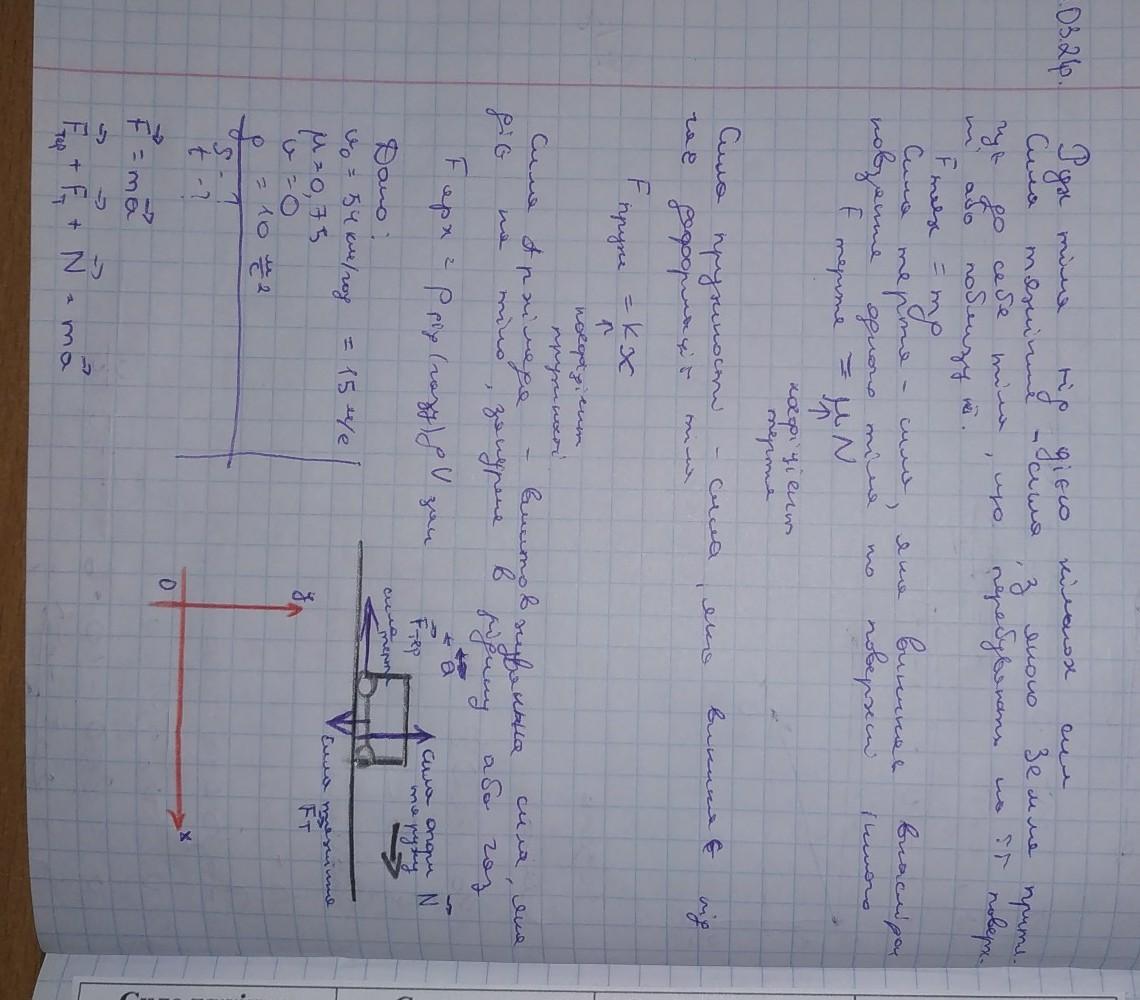 .03.24р.
Рух тіла під дією кількох сил
Сила тяжіння - сила, з якою Земля притя-
гує до себе тіла, що перебувають на її поверх-
ні або поблизу неї.
Fтяж = mg
Сила тертя - сила, яка виникає внаслідок
повзання одного тіла по поверхні іншого
F тертя = μN
коефіцієнт
тертя
Сила пружності - сила, яка виникає під
час деформації тіла
F пруж = kx
коефіцієнт
пружності
Сила Архімеда - виштовхувальна сила, яка
діє на тіло, занурене в рідину або газ
F арх = ρ рід (газу) g V зан
Дано:
v₀ = 54 км/год = 15 м/с
μ = 0,75
v = 0
g = 10 м/с²
S - ?
t - ?
a
Fтер
сила терт
сила опори
та руху N
сила тяжіння
Fт
y
0
x
F = ma
Fтер + Fт + N = ma